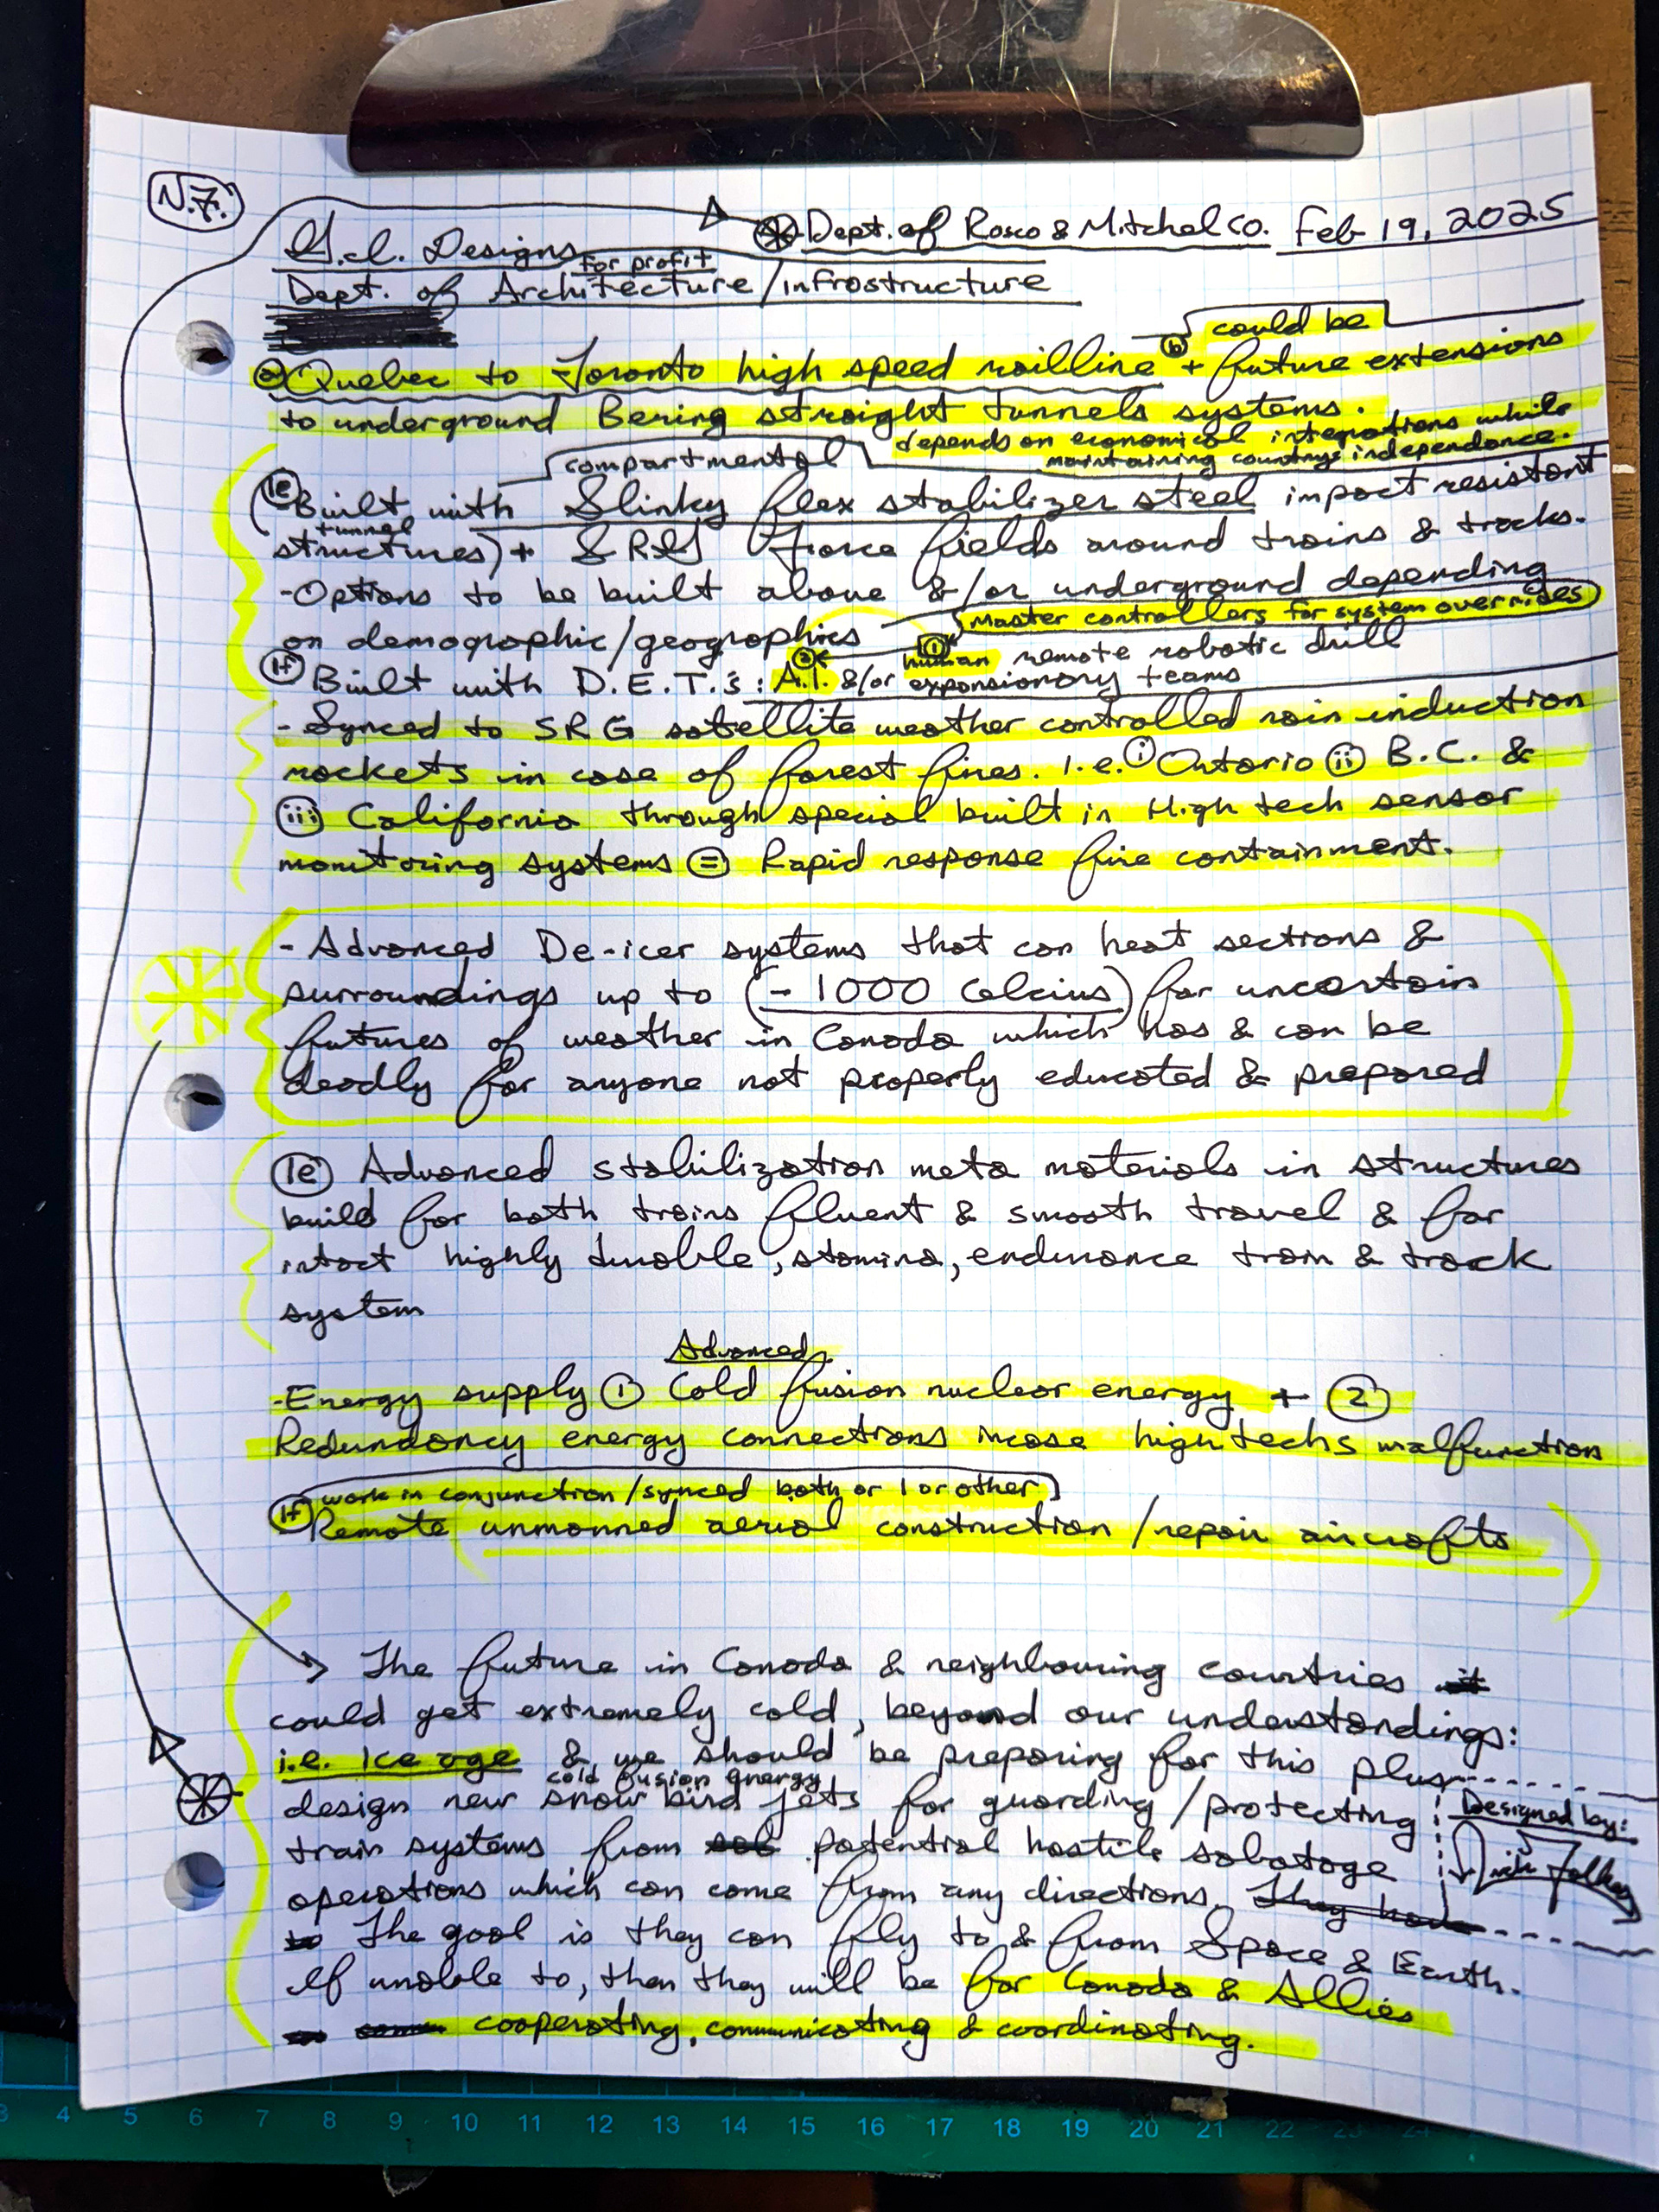 N.F.
G.I. Designs
Dept. of Rosco & Mitchel Co. Feb 19, 2025
for profit
Dept. of Architecture/infrostructure
could be
a Quebec to Toronto high speed railline b + future extensions
to underground Bering straight tunnels systems.
depends on economical integrations while
maintaining countrys independance.
compartmental
1e Built with Slinky flex stabilizer steel impact resistant
tunnel
structures) + SRG Force fields around trains & tracks.
-Options to be built above &/or underground depending
on demographic/geographics
Master controllers for system overrides
2 1
human remote robotic drill
1f Built with D.E.T.'s: A.I. &/or expansionary teams
- Synced to SRG satellite weather controlled rain induction
rockets in case of forest fires. I.e. i Ontario ii B.C. &
iii California through special built in High tech sensor
monitoring systems = Rapid response fire containment.
- Advanced De-icer systems that can heat sections &
surroundings up to (- 1000 Celcius) for uncertain
futures of weather in Canada which has & can be
deadly for anyone not properly educated & prepared
1e Advanced stabilization meta materials in structures
build for both trains fluent & smooth travel & for
intact highly durable, stamina, endurance train & track
system
Advanced
-Energy supply 1 Cold fusion nuclear energy + 2
Redundancy energy connections incase high techs malfunction
work in conjunction/synced both or 1 or other
1f Remote unmanned aerial construction/repair aircrafts
The future in Canada & neighbouring countries
could get extremely cold, beyond our understandings:
i.e. Ice age & we should be preparing for this plus
cold fusion energy
design new snow bird jets for guarding/protecting
Designed by:
train systems from potential hostile sabotage
operations which can come from any directions. They have
The goal is they can fly to & from Space & Earth.
If unable to, then they will be for Canada & Allies
cooperating, communicating & coordinating.
3 4 5 6 7 8 9 10 11 12 13 14 15 16 17 18 19 20 21 22 23 24